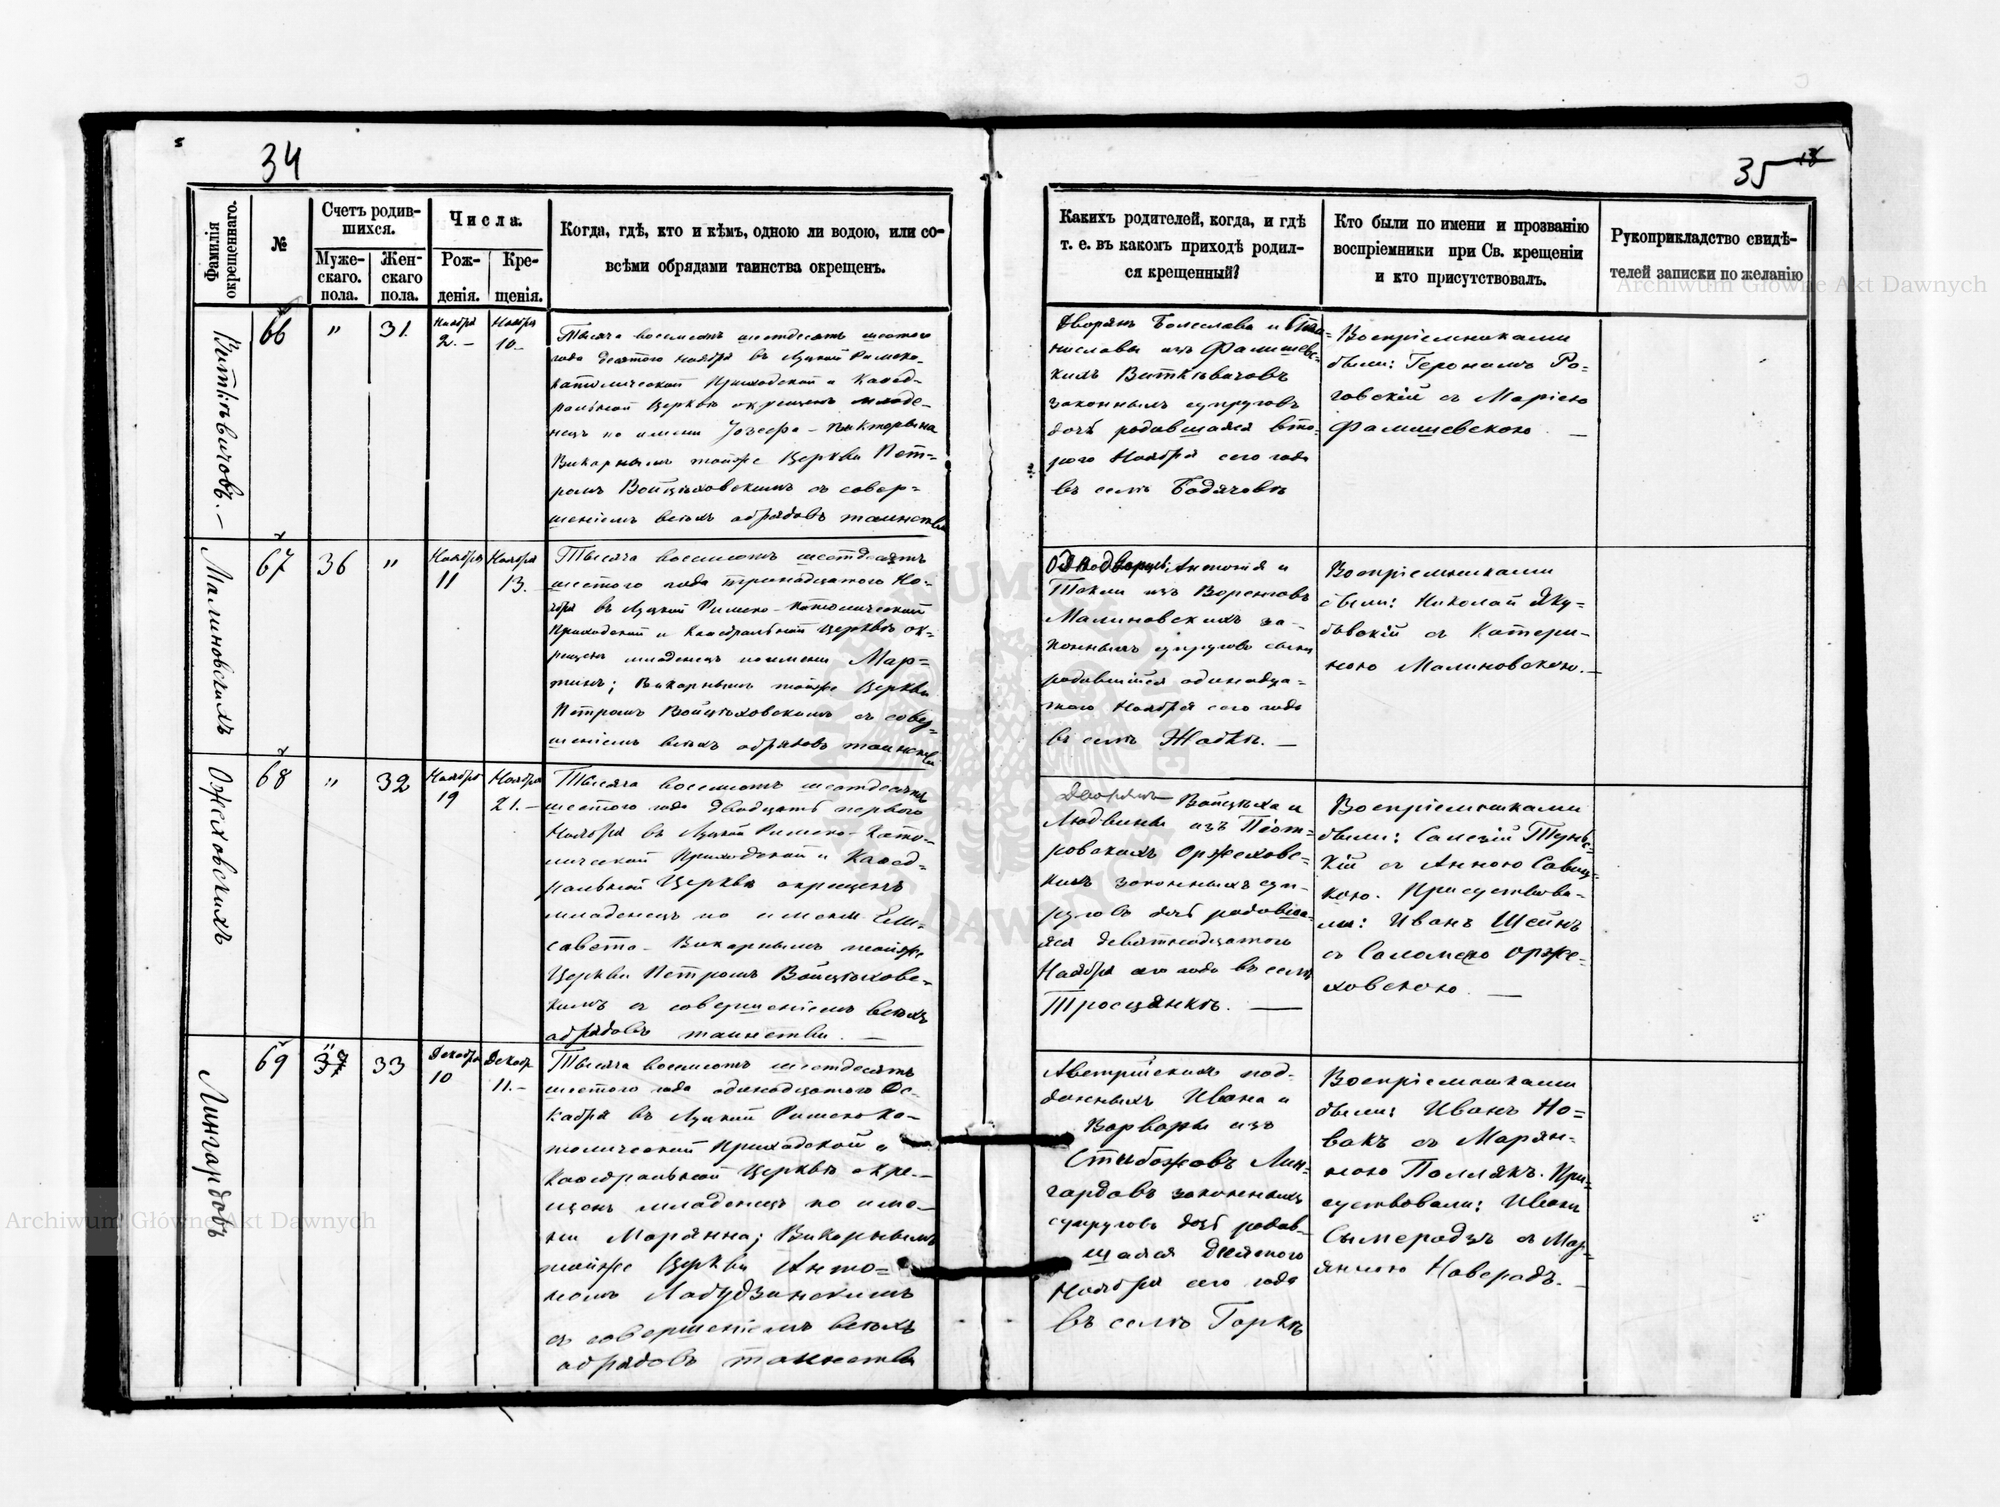 34
Фамилія окрещеннаго.
№
Счетъ родив-
шихся.
Муже-
скаго.
пола.
Жен-
скаго
пола.
Числа.
Рож-
денія.
Кре-
щенія.
Когда, гдѣ, кто и кѣмъ, одною ли водою, или со-
всѣми обрядами таинства окрещенъ.
Виткѣвичовъ.—
66
"
31.
Ноября
2.—
Ноября
10—
Тысяча восемсотъ шестдесятъ шестого
года десятого ноября въ Луцкой Римско-
католической Приходской и Каѳед-
ральной Церквѣ окрещенъ младе-
нецъ по имени Іозефа-Викторына
Викарнымъ тойже Церкви Пет-
ромъ Войцѣховскимъ съ совер-
шеніемъ всѣхъ обрядовъ таинства
Малиновскихъ
67
36
"
Ноября
11
Ноября
13.
Тысяча восемсотъ шестдесятъ
шестого года тринадцатого Но-
ября въ Луцкой Римско-Католической
Приходской и Каѳедральной Церквѣ ок-
рещенъ младенецъ по имени Мар-
тинъ; Викарнымъ тойже Церкви
Петромъ Войцѣховскимъ съ совер-
шеніемъ всѣхъ обрядовъ таинства
Оржеховскихъ
68
"
32
Ноября
19
Ноября
21.—
Тысяча восемсотъ шестдесятъ
шестого года двадцать первого
Ноября въ Луцкой Римско-Като-
лической Приходской и Каѳед-
ральной Церквѣ окрещенъ
младенецъ по имени Ели-
савета-Викарнымъ тойже
Церкви Петромъ Войцѣховс-
кимъ съ совершеніемъ всѣхъ
обрядовъ таинства.—
Лингардовъ
69
"
37
33
Декабря
10
Декабр
11.—
Тысяча восемсотъ шестдесятъ
шестого года одинадцатого Де-
кабря въ Луцкой Римско Ка-
толической Приходской и
Каѳедральной Церквѣ окре-
щенъ младенецъ по име-
ни Марянна; Викарнымъ
тойже Церкви Анто-
номъ Лабудзинскимъ
съ совершеніемъ всѣхъ
обрядовъ таинства
35
Какихъ родителей, когда, и гдѣ
т. е. въ какомъ приходѣ родил-
ся крещенный?
Кто были по имени и прозванію
воспріемники при Св. крещеніи
и кто присутствовалъ.
Рукоприкладство свидѣ-
телей записки по желанію
Дворянъ Болеслава и Ста-
ниславы изъ Фалишевс-
кихъ Виткѣвичовъ
законныхъ супруговъ
дочь родившаяся вто-
рого Ноября сего года
въ селѣ Бодячовѣ
Воспріемниками
были: Геронимъ Ро-
говскій съ Маріею
Фалишевскою.—
Однодворцъ; Антонія и
Текли изъ Воренговъ
Малиновскихъ за-
конныхъ супруговъ сынъ
родившійся одинадца-
того Ноября сего года
въ селѣ Жабкѣ.—
Воспріемниками
были: Николай Яку-
бовскій съ Катери-
ною Малиновскою.—
Дворянъ Войцѣха и
Людвины изъ Піот-
ровскихъ Оржеховс-
кихъ законныхъ суп-
руговъ дочь родивша-
яся девятнадцатого
Ноября сего года въ селѣ
Тросцянкѣ.—
Воспріемниками
были: Салезій Тунс-
кій съ Анною Савиц-
кою. Присуствова-
ли: Иванъ Шейнъ
съ Саломеею Орже-
ховскою.—
Австрійскихъ под-
данныхъ Ивана и
Варвары изъ
Стыбожовъ Лин-
гардовъ законныхъ
супруговъ дочь родив-
шаяся десятого
Ноября сего года
въ селѣ Горкѣ
Воспріемниками
были: Иванъ Но-
вакъ съ Марян-
ною Поллякъ. При-
суствовали: Иванъ
Сымерадзъ съ Мар-
янною Наверадъ.—
Archiwum Główne Akt Dawnych
Archiwum Główne Akt Dawnych